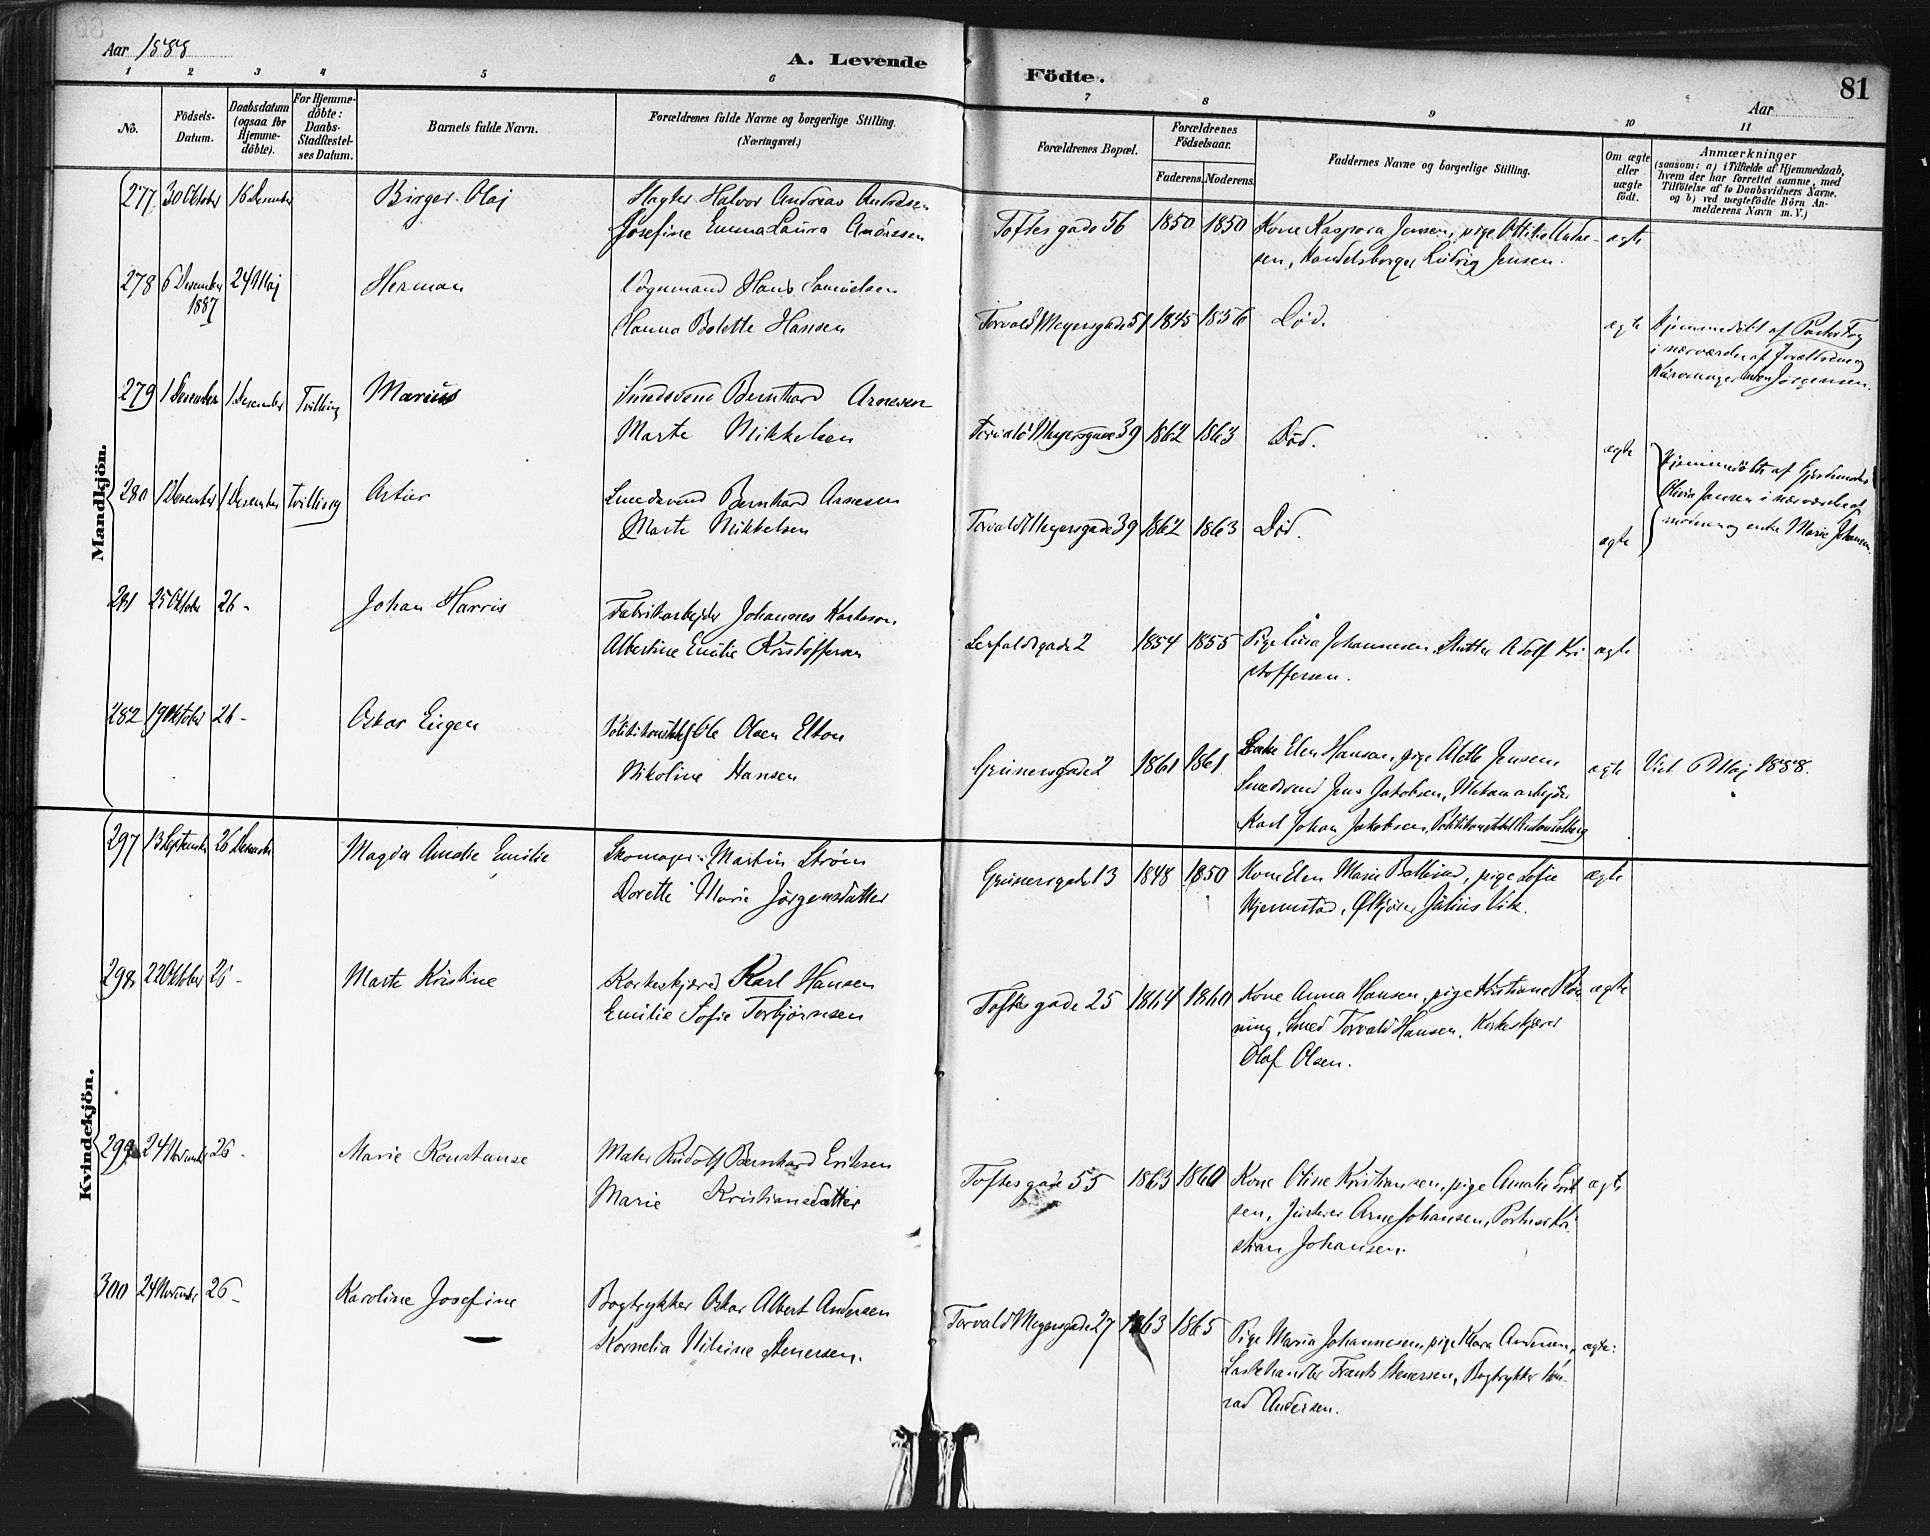 Aar 1888
A. Levende
Födte.
Aar
81
1 2 3 4 5 6 7 8 9 10 11
No.
Födsels-
Datum.
Daabsdatum
(ogsaa for
Hjemme-
döbte).
For Hjemme-
döbte:
Daabs-
Stadfæstel-
ses Datum.
Barnets fulde Navn.
Forældrenes fulde Navne og borgerlige Stilling.
(Næringsvei.)
Forældrenes Bopæl.
Forældrenes
Födselsaar.
Faderens. Moderens.
Faddernes Navne og borgerlige Stilling.
Om ægte
eller
uægte
födt.
Anmærkninger
(saasom: a) i Tilfælde af Hjemmedaab,
hvem der har forrettet samme, med
Tilföielse af to Daabsvidners Navne.
og b) ved uægtefödte Börn An-
melderens Navn m. V.)
Mandkjön.
277 30 Oktober 16 Desember Birger Olaf
Slagter Halvor Andreas Andresen
Josefine Emma Laura Andresen
Toftes gade 56 1850 1850
Kone Kaspara Jensen, pige Ottilie Andre-
sen, Handelsborger Ludvig Jensen.
ægte
278 6 Desember 1887 24 Maj Herman
Vognmand Hans Samuelsen
Hanna Bolette Hansen
Torvald Meyersgade 51 1845 1856 Död. ægte
Hjemmedöbt af
i nærværelse af Forældrene og
Jörgensen.
279 1 Desember 1 Desember Tvilling Marius
Smedsvend Bernhard Arnesen
Marte Mikkelsen
Torvald Meyersgade 39 1862 1863 Död. ægte
280 1 Desember 1 Desember Tvilling Artur
Smedsvend Bernhard Arnesen
Marte Mikkelsen
Torvald Meyersgade 39 1862 1863 Död. ægte
Hjemmedöbte af
Olivia Jensen i nærværelse af
moderen og enke Marie Johansen.
281 25 Oktober 26 - Johan Harris
Fabrikarbejder Johannes Karlsson
Albertine Emilie Kristoffersen
Lerfaldsgade 2 1854 1855
Pige Lina Johannesen, Adolf Kri
stoffersen.
ægte
282 19 Oktober 26 - Oskar Eugen
Politikonstabel Ole Olsen Elton
Nikoline Hansen
Grünersgade 2 1861 1861
Enke Elen Hansen, pige Alette Jensen
Smedsvend Jens Jakobsen, Mekan arbejder
Karl Johan Jakobsen, Politikonstabel Anton
ægte
Viet Maj 1888.
Kvindekjön.
297 13 September 26 Desember Magda Amalie Emilie
Skomager Martin Ström
Dorette Marie Jörgensdatter
Grünersgade 13 1848 1850
Kone Elen Marie pige Sofie
Hjemstad, Julius Vik.
ægte
298 22 Oktober 26 - Marte Kristine
Korkeskjærer Karl Hansen
Emilie Sofie Torbjørnsen
Toftes gade 25 1864 1860
Kone Anna Hansen, pige Kristiane
ning, Smed Torvald Hansen, Korkeskjærer
Olaf Olsen.
ægte
299 24 November 26 - Marie Konstanse
Maler Rudolf Bernhard Eriksen
Marie Kristiansdatter
Toftes gade 55 1863 1860
Kone Oline Kristiansen, pige Amalie Erik
sen, Arne Johansen, Portner Kri
stian Johansen.
ægte
300 24 November 26 - Karoline Josefine
Bogtrykker Oskar Albert Andersen
Kornelia Vilhine Stenersen.
Torvald Meyersgade 27 1863 1865
Pige Maria Johannesen, pige Klara Andersen,
Frants Stenersen, Bogtrykker Kon-
rad Andersen.
ægte.